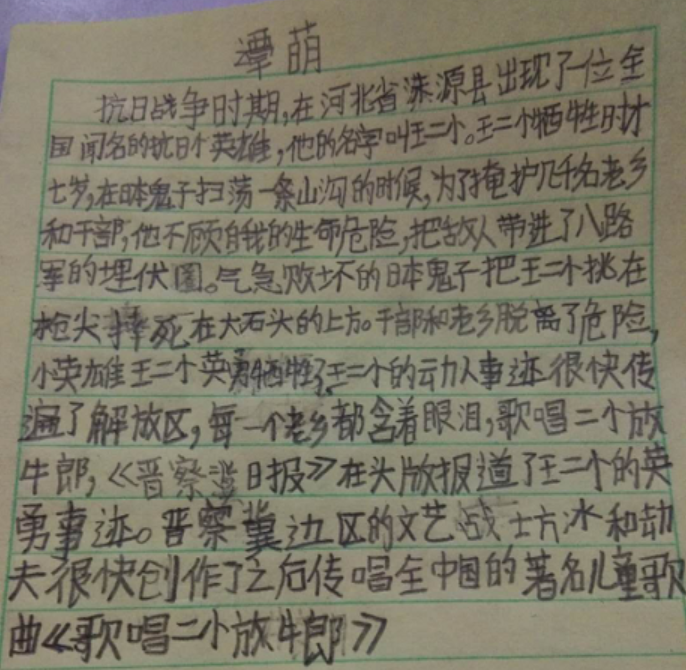 谭萌
抗日战争时期,在河北省涞源县出现了一位全
国闻名的抗日个英雄,他的名字叫王二个。王二个牺牲时才
七岁,在日本鬼子扫荡一条山沟的时候,为了掩护几千名老乡
和干部,他不顾自我的生命危险,把敌人带进了八路
军的埋伏圈。气急败坏的日本鬼子把王二个挑在
枪尖摔死在大石头的上方。干部和老乡脱离了危险,
小英雄王二个英勇牺牲了王二个的动人事迹很快传
遍了解放区,每一个老乡都含着眼泪,歌唱二个放
牛郎,《晋察冀日报》在头版报道了王二个的英
勇事迹。晋察冀边区的文艺战士方冰和劫
夫很快创作了之后传唱全中国的著名儿童歌
曲《歌唱二小放牛郎》